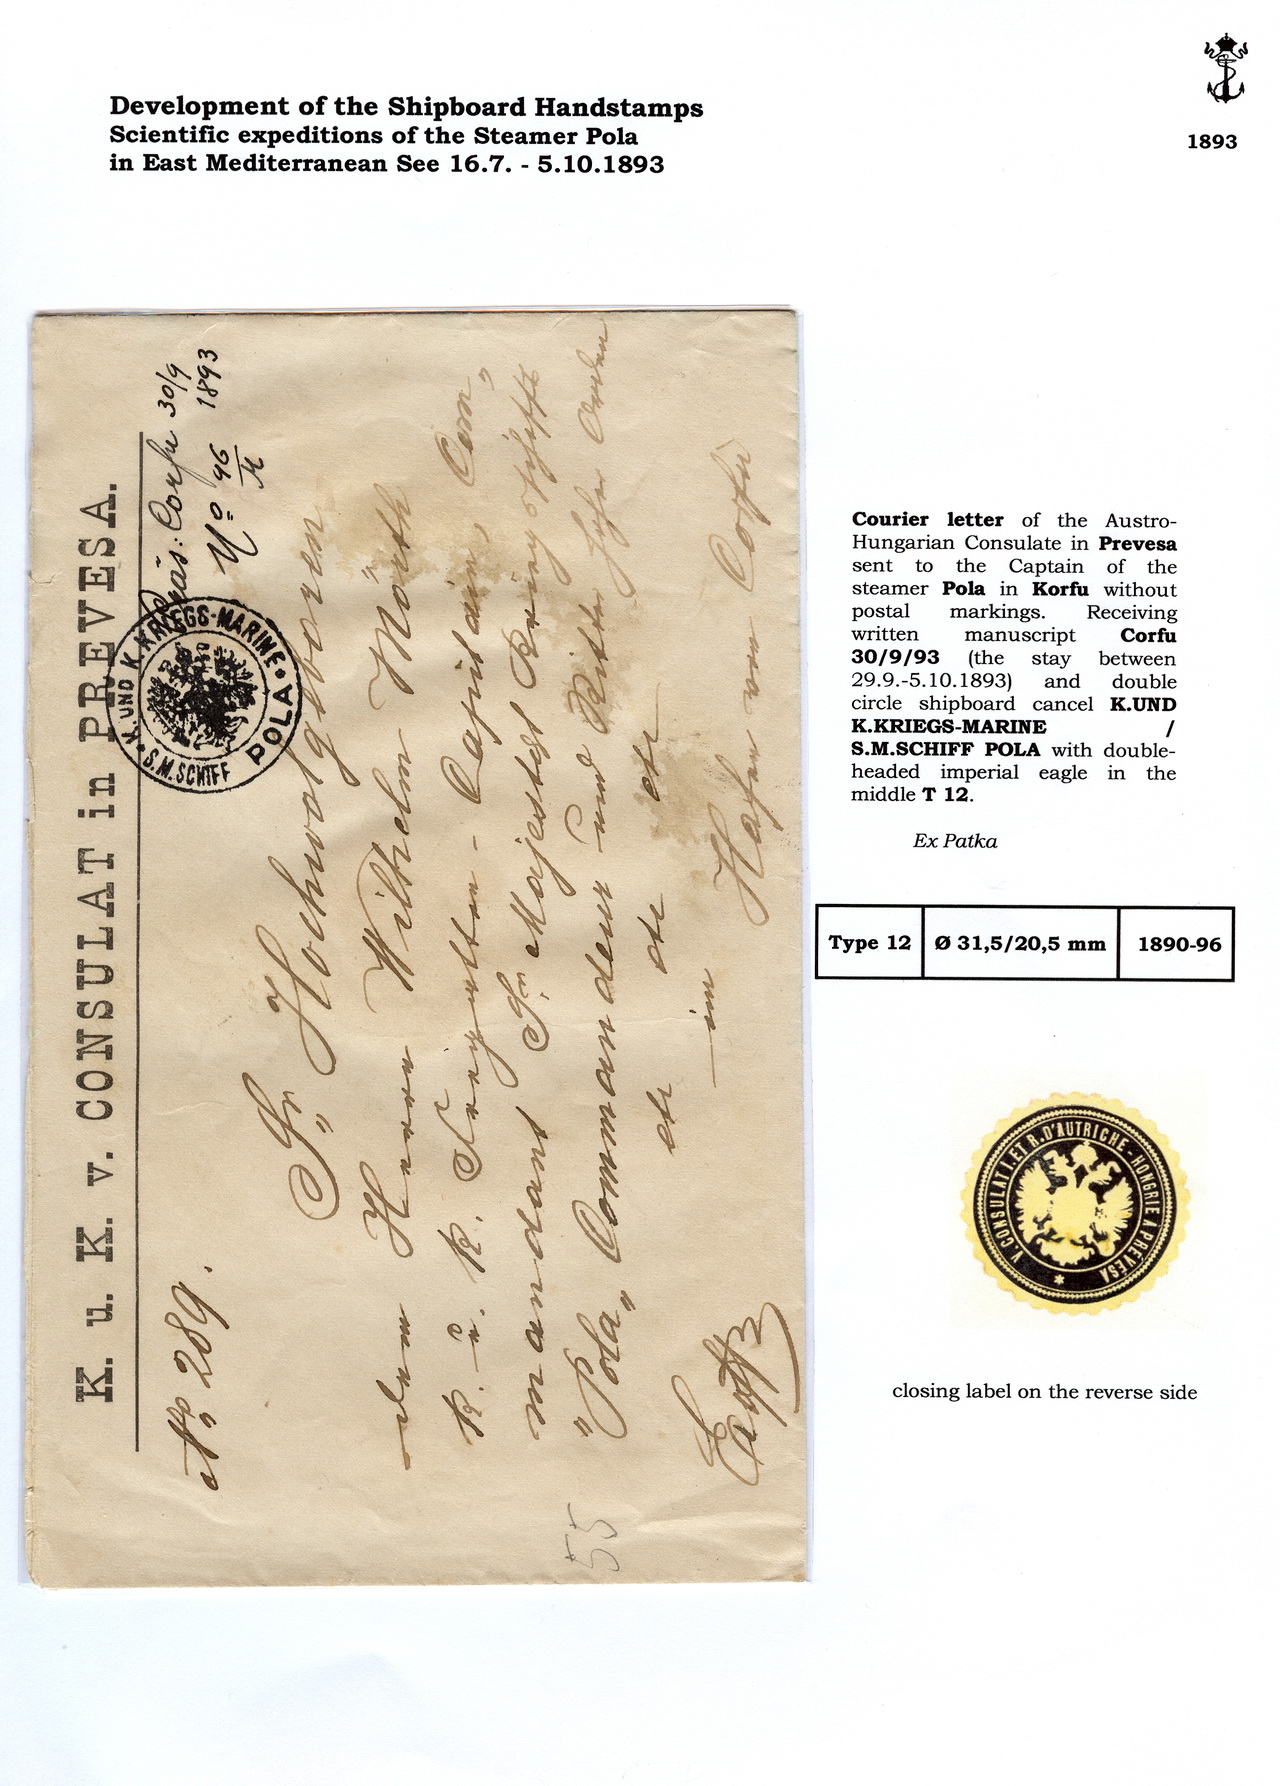 Development of the Shipboard Handstamps
Scientific expeditions of the Steamer Pola
in East Mediterranean See 16.7. - 5.10.1893
1893
K. u. K. v. CONSULAT in PREVESA.
Nº 289.
präs: Corfu 30/9
1893
Nº 96
K. UND K. KRIEGS-MARINE
S.M. SCHIFF POLA
Sr Hochwolgeboren
dem Herrn Wilhelm Mörth
K. u. K. Fregatten-Capitain, Com„
mandant Sr Majestät Kriegsschiffs
„Pola„ Commandeur und Ritter hoher Orden
etc etc etc
im Hafen von Corfu
55
Courier letter of the Austro-
Hungarian Consulate in Prevesa
sent to the Captain of the
steamer Pola in Korfu without
postal markings. Receiving
written manuscript Corfu
30/9/93 (the stay between
29.9.-5.10.1893) and double
circle shipboard cancel K.UND
K.KRIEGS-MARINE /
S.M.SCHIFF POLA with double-
headed imperial eagle in the
middle T 12.
Ex Patka
Type 12 Ø 31,5/20,5 mm 1890-96
V. CONSULAT I. ET R. D'AUTRICHE-HONGRIE A PRÉVESA
closing label on the reverse side